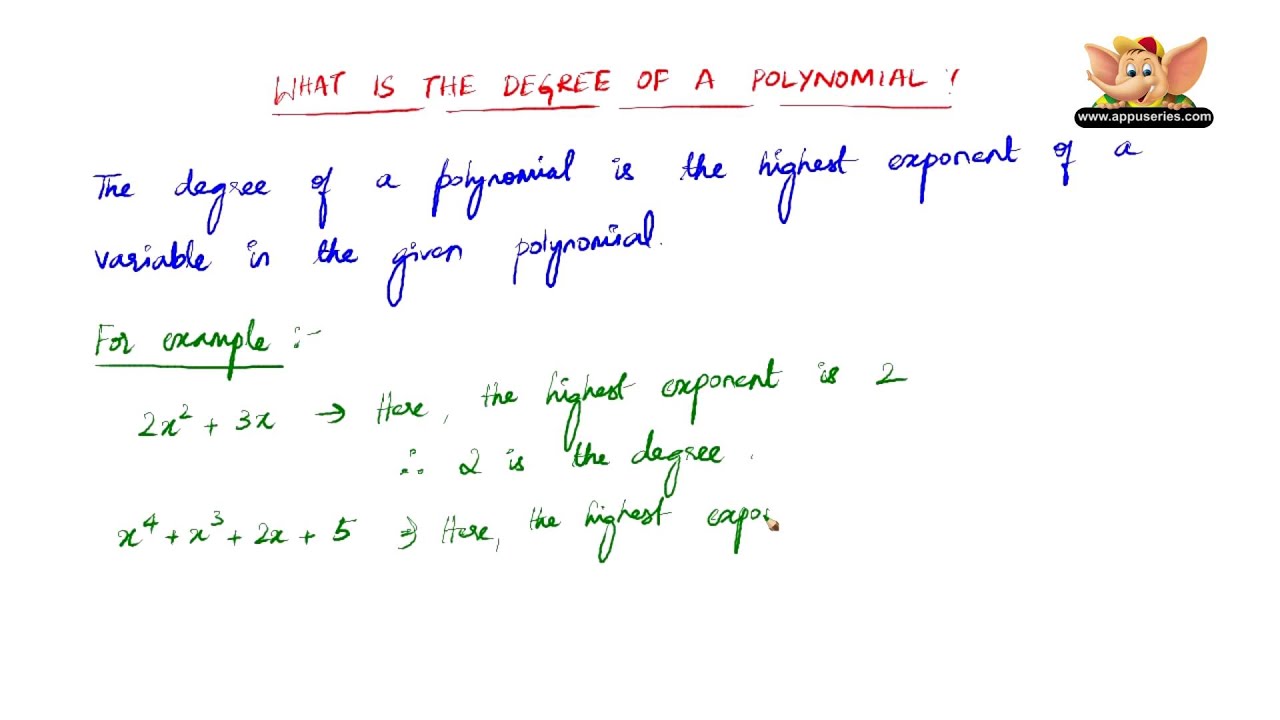 WHAT IS THE DEGREE OF A POLYNOMIAL?
www.appuseries.com
The degree of a polynomial is the highest exponent of a
variable in the given polynomial.
For example :-
2x² + 3x → Here, the highest exponent is 2
∴ 2 is the degree.
x⁴ + x³ + 2x + 5 ⇒ Here, the highest expon